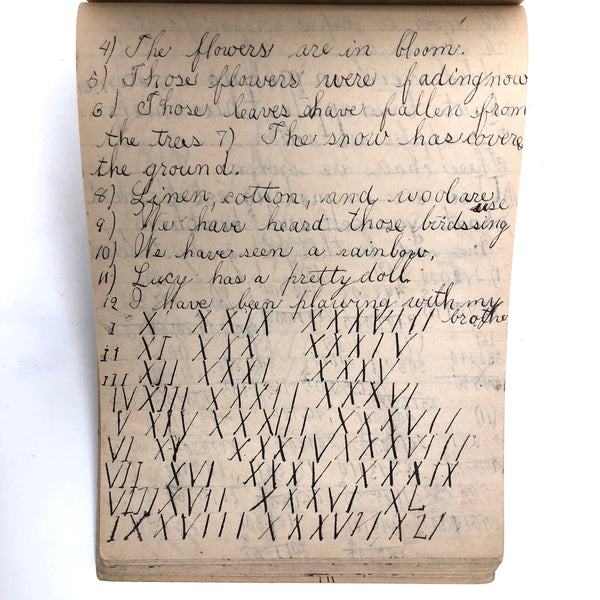 4) The flowers are in bloom.
5) Those flowers were fading now
6) Those leaves have fallen from
the trees 7) The snow has covere
the ground.
8) Linen, cotton, and wool are use
9) We have heard those birds sing
10) We have seen a rainbow.
11) Lucy has a pretty doll
12 I have been playing with my
brothe
I X XXIX XXXVIII
II XI XXX XXXIV
III XII XXXI XXXV
IV XIII XXXII XXXVI
V XIV XXXIII XXXVIII
VI XV XXXIV XXXVIII
VII XVI XXXV XXXIX
VIII XVII XXXVI XL
IX XVIII XXXVII XLI